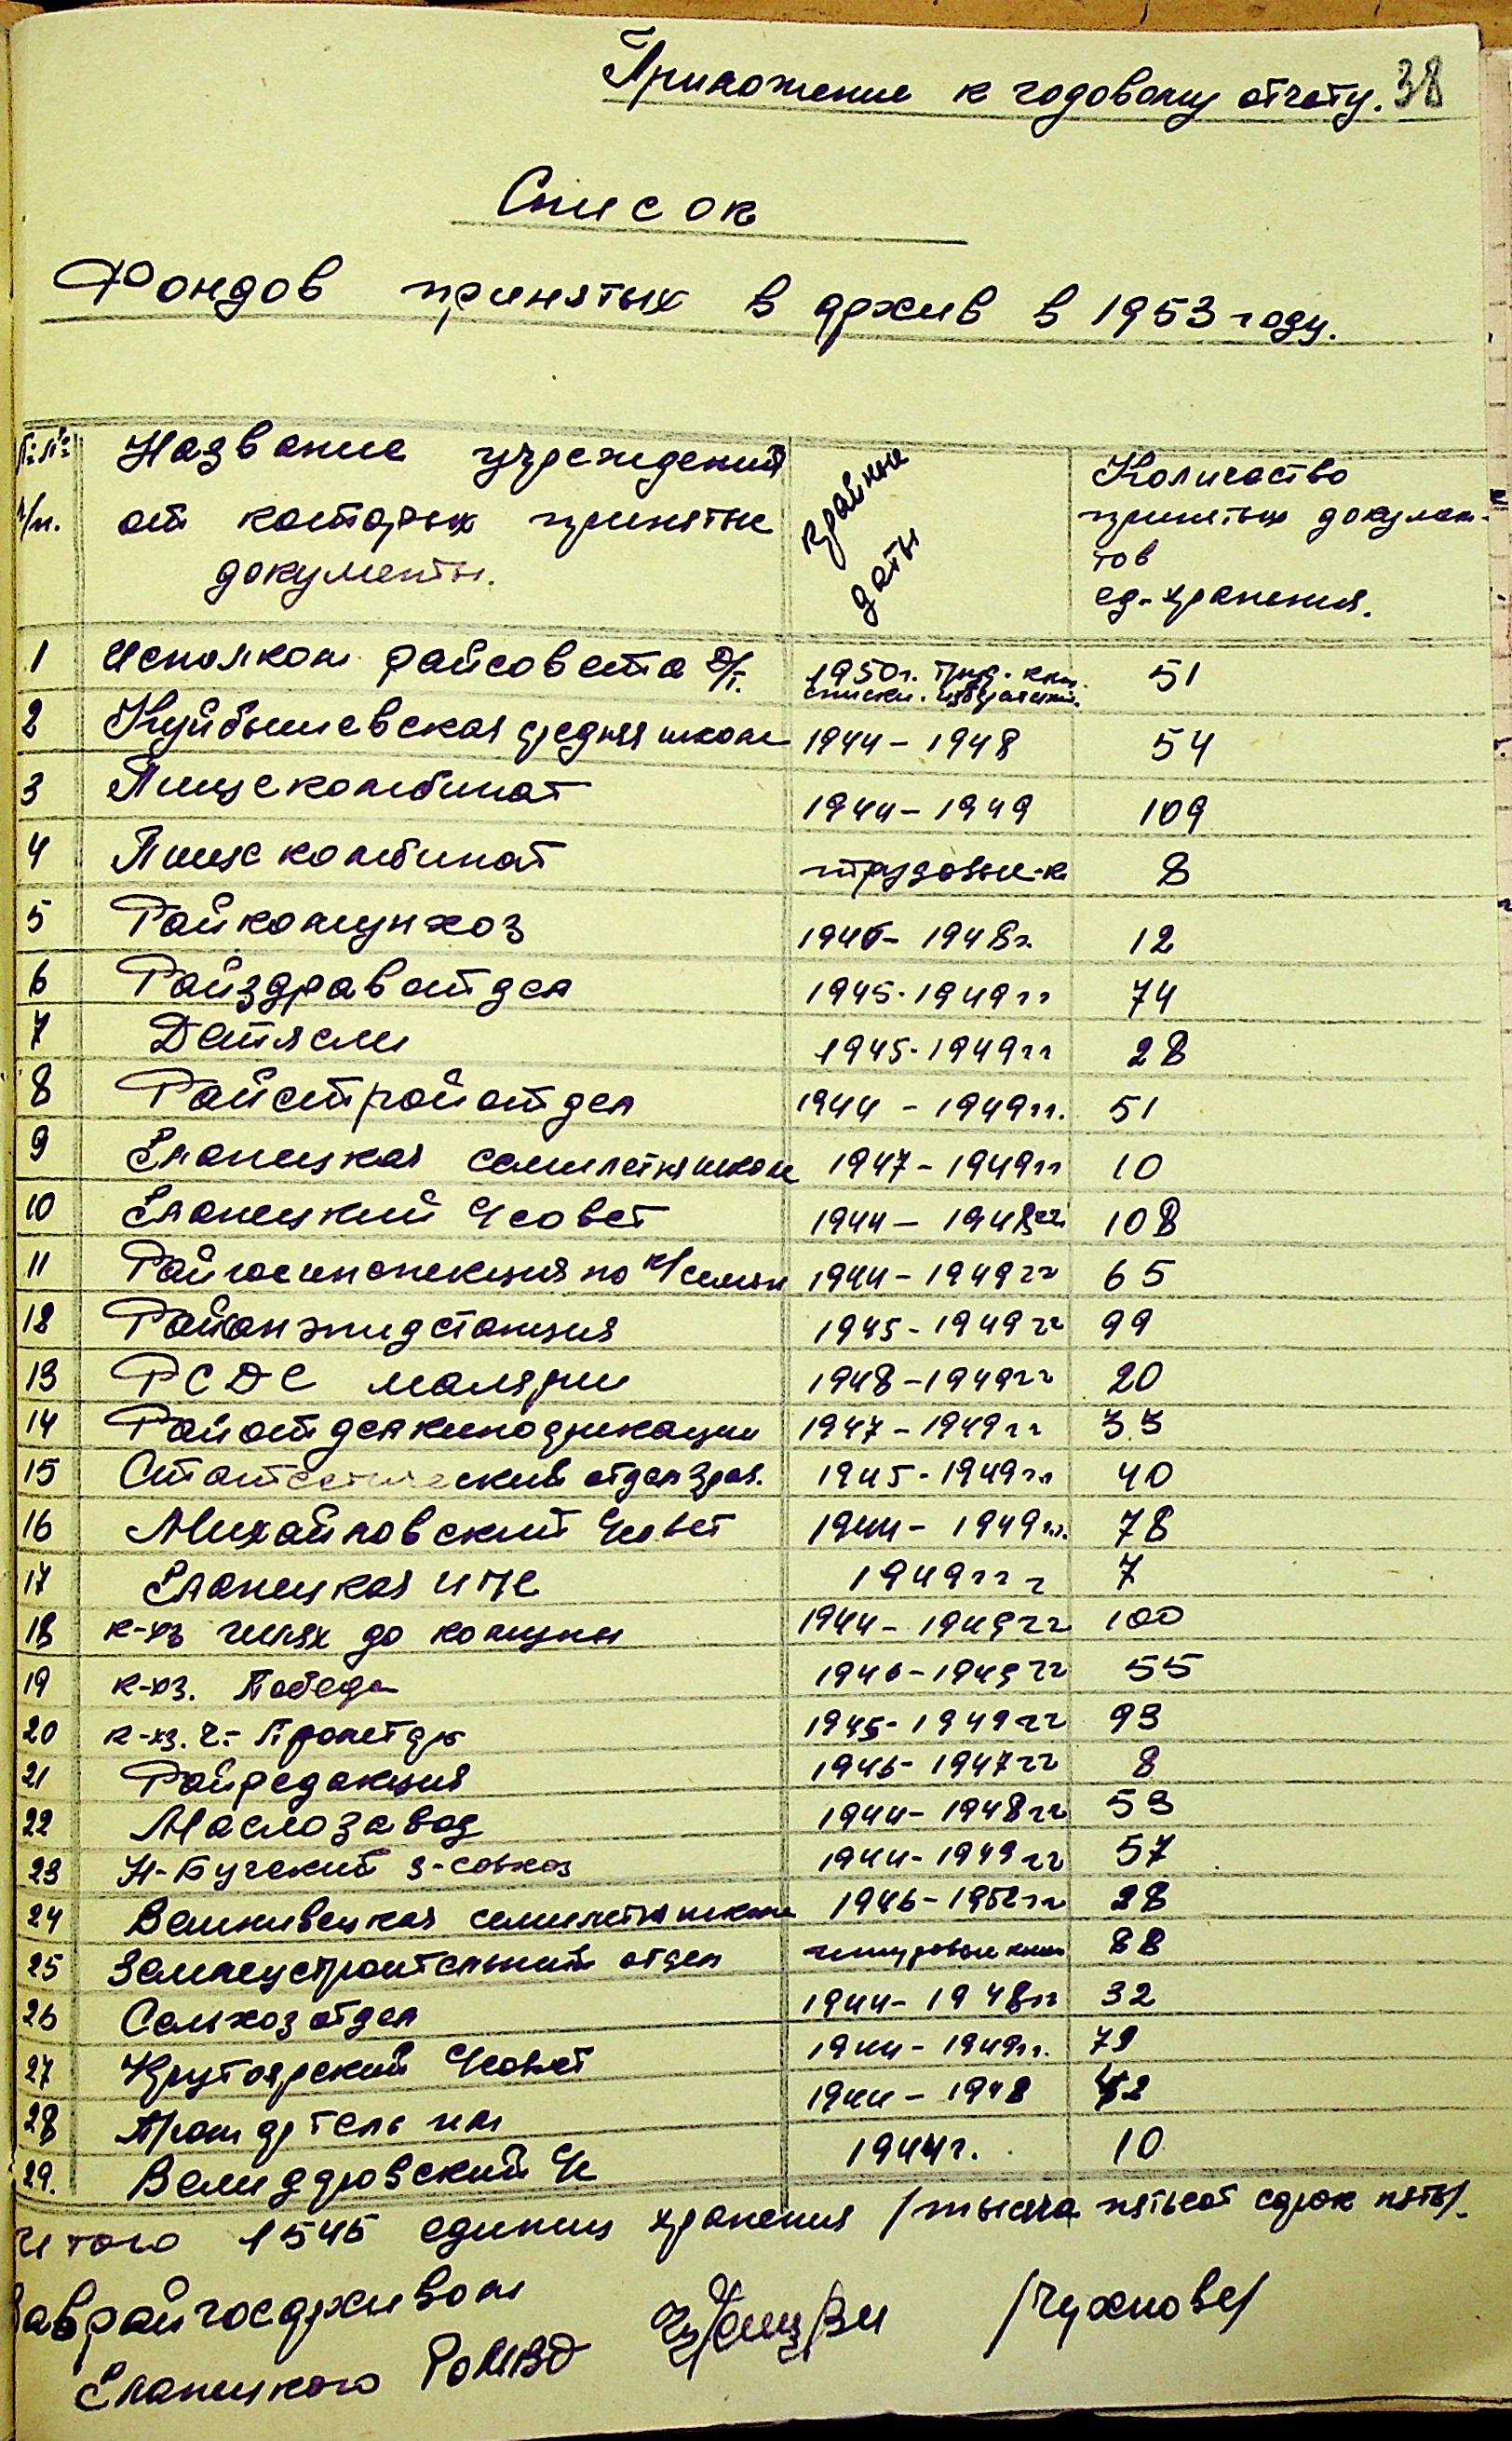 Приложение к годовому отчету. 38
Список
Фондов принятых в архив в 1953 году.
№№ Название учреждений крайние Количество
п/п. от которых приняты даты принятых докумен-
документы. тов
ед. хранения.
1 Исполком райсовета д/т. 1950г. труд. кни. списки. избирателей. 51
2 Куйбышевская средняя школа 1944 – 1948 54
3 Пищекомбинат 1944 – 1949 109
4 Пищекомбинат трудовые-к 8
5 Райкомунхоз 1946 – 1948г. 12
6 Райздравотдел 1945-1949гг 74
7 Детясли 1945-1949гг 28
8 Райстройотдел 1944 – 1949гг. 51
9 Еланецкая семилетня школа 1947 – 1949гг 10
10 Еланецкий Чсовет 1944 – 1948гг 108
11 Райгосинспекция по 1944 – 1949гг 65
12 Районэпидстанция 1945 – 1949гг 99
13 РСДС малярии 1948 – 1949гг 20
14 Райотделкинофикации 1947 – 1949гг 33
15 Статистический отдел здрав. 1945 - 1949гг 40
16 Михайловский Чсовет 1944 – 1949гг. 78
17 Еланецкая 1949гг 7
18 к-хз шлях до комуны 1944 – 1949гг 100
19 к-хз. Победа 1946 – 1949гг 55
20 к-хз. Ч.- Пролетарь 1945- 1949гг 93
21 Райредакция 1946- 1947гг 8
22 Маслозавод 1944- 1948гг 53
23 Н-Бугский з-совхоз 1944- 1949гг 57
24 семилетня школа 1946 – 1952гг 28
25 Землеустроительний отдел шнуровые книг 88
26 Сельхозотдел 1944- 1948гг 32
27 Крутоярский Чсовет 1944 - 1949гг. 79
28 Пром артель 1944 – 1948 42
29. Велидаровский Чс 1944г. 10
Итого 1545 единиц хранения /тысяча пятьсот сорок пять/.
Заврайгосархивом /Чухнове/
Еланецкого РоМВД